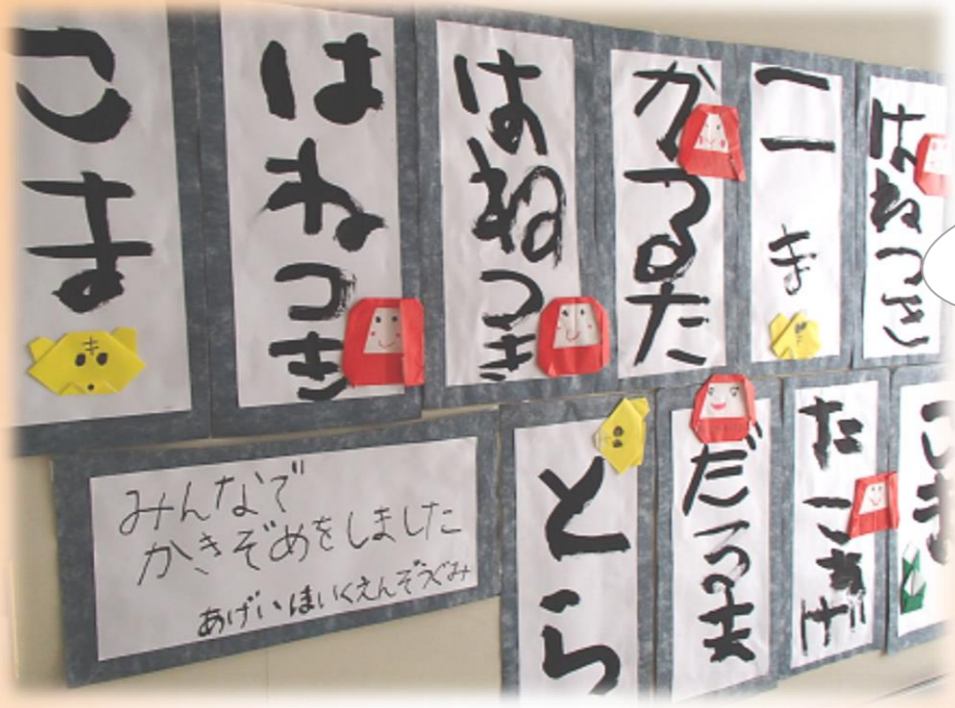 こま
はねつき
はねつき
かるた
こま
はねつき
みんなで
かきぞめをしました
あげいほいくえんぞうぐみ
とら
だるま
たこあげ